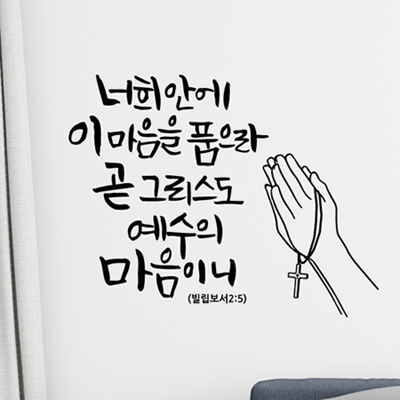 너희 안에
이 마음을 품으라
곧 그리스도
예수의
마음이니
(빌립보서2:5)